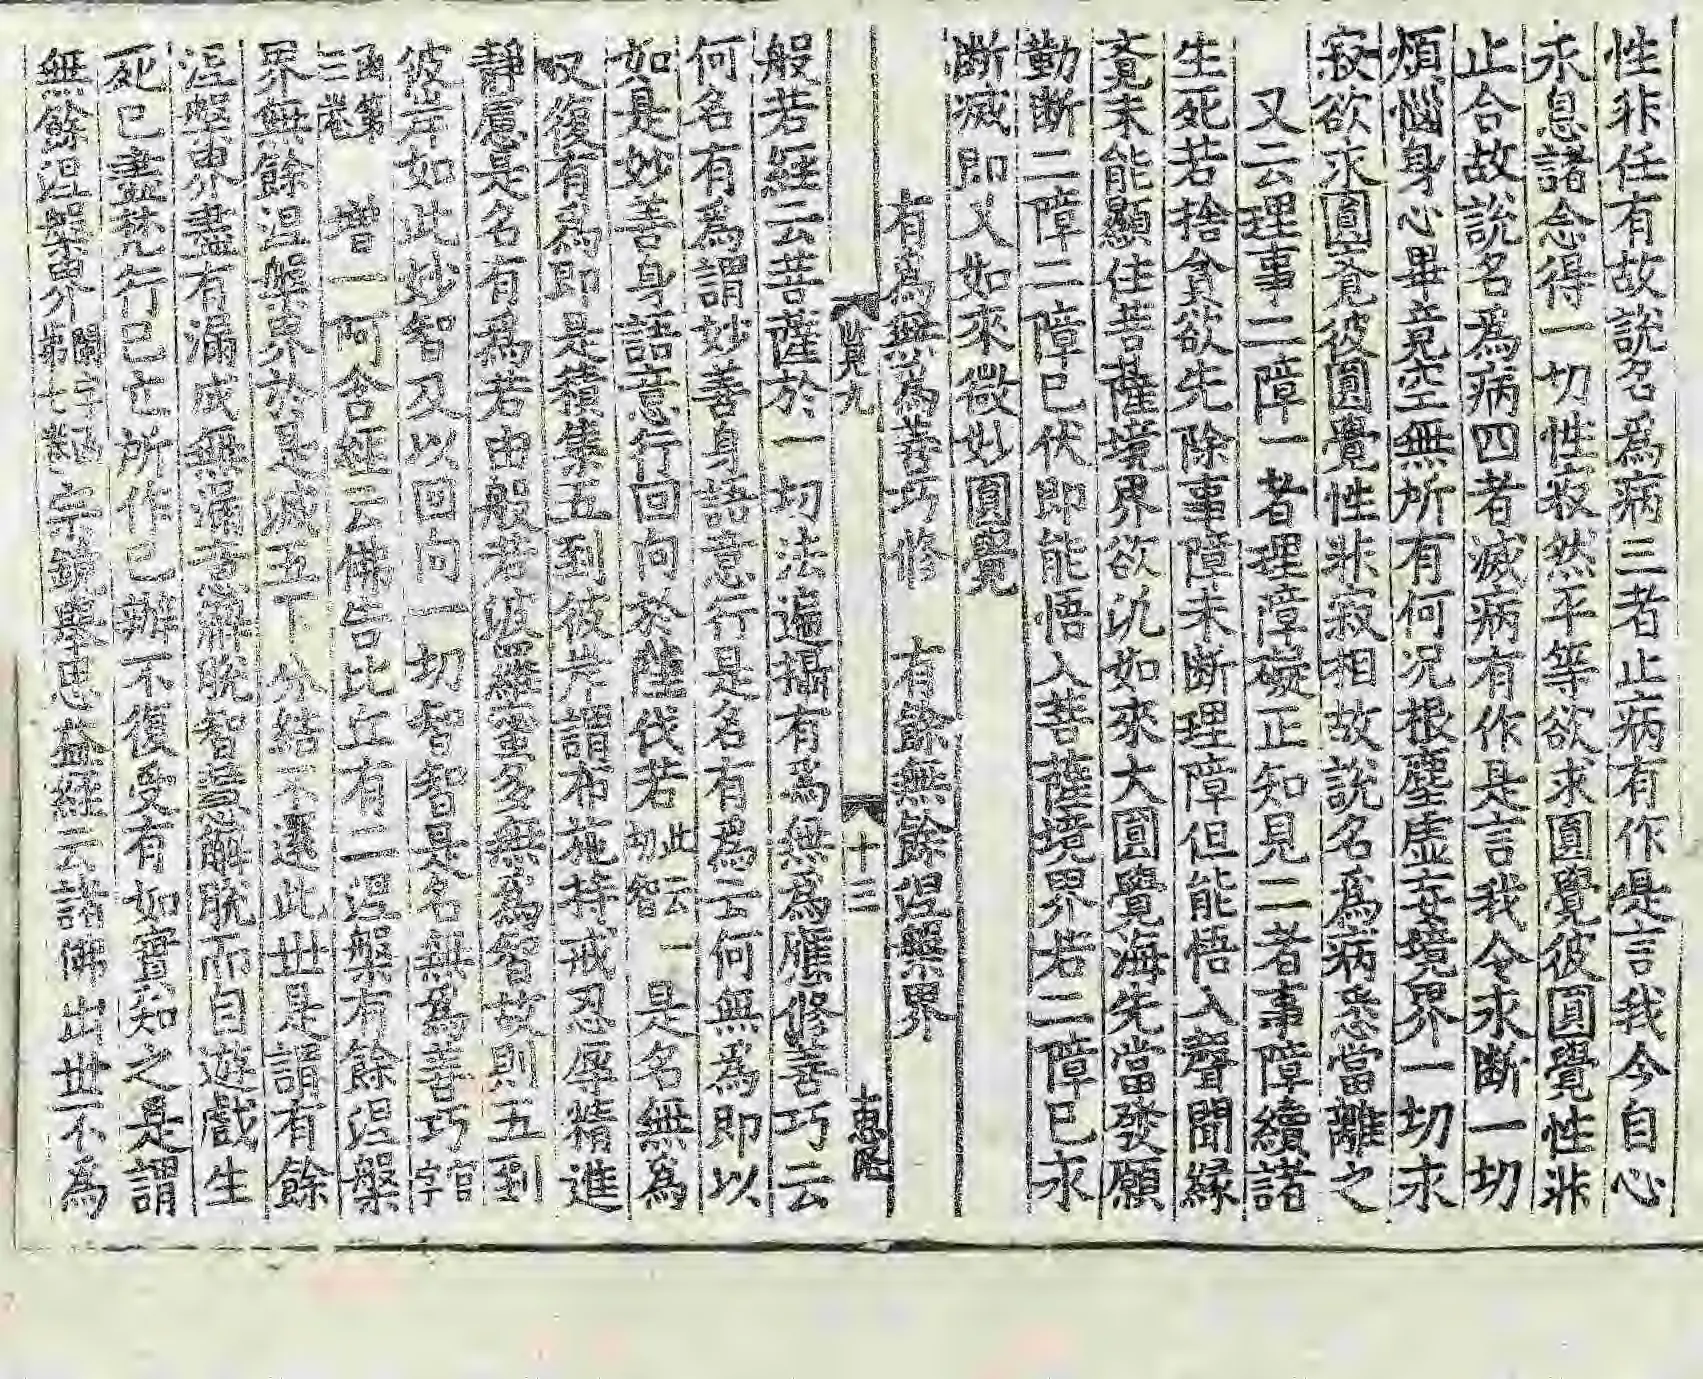 性非任有故說名爲病三者止病有作是言我今自心
永息諸念得一切性寂然平等欲求圓覺彼圓覺性非
止合故說名爲病四者滅病有作是言我今永斷一切
煩惱身心畢竟空無所有何况根塵虛妄境界一切永
寂欲求圓覔彼圓覺性非寂相故說名爲病悉當離之
又云理事二障一者理障礙正知見二者事障續諸
生死若捨貪欲先除事障未斷理障但能悟入聲聞緣
覔未能顯住菩薩境界欲汎如來大圓覺海先當發願
勤断二障二障已伏即能悟入菩薩境界若二障已永
断滅即入如來微妙圓覺
有爲無爲善巧修 有餘無餘涅槃界
覽九 十三
般若經云菩薩於一切法遍攝有爲無爲應修善巧云
何名有爲謂妙善身語意行是名有爲云何無爲即以
如是妙善身語意行回向於薩伐若此云一切智是名無爲
又復有爲即是積集五到彼岸謂布施持戒忍辱精進
靜慮是名有爲若由般若波羅蜜多無爲智故則五到
彼岸如此妙智及以回向一切智智是名無爲善巧官字
函第三卷 增一阿含經云佛告比丘有二涅槃有餘涅槃
界無餘涅槃界於是滅五下分結不還此世是謂有餘
涅槃界盡有漏成無漏意解脫智慧解脫而自遊戲生
死已盡梵行已立所作已辦不復受有如實知之是謂
無餘涅槃界 宗鏡舉思益經云諸佛出世不爲